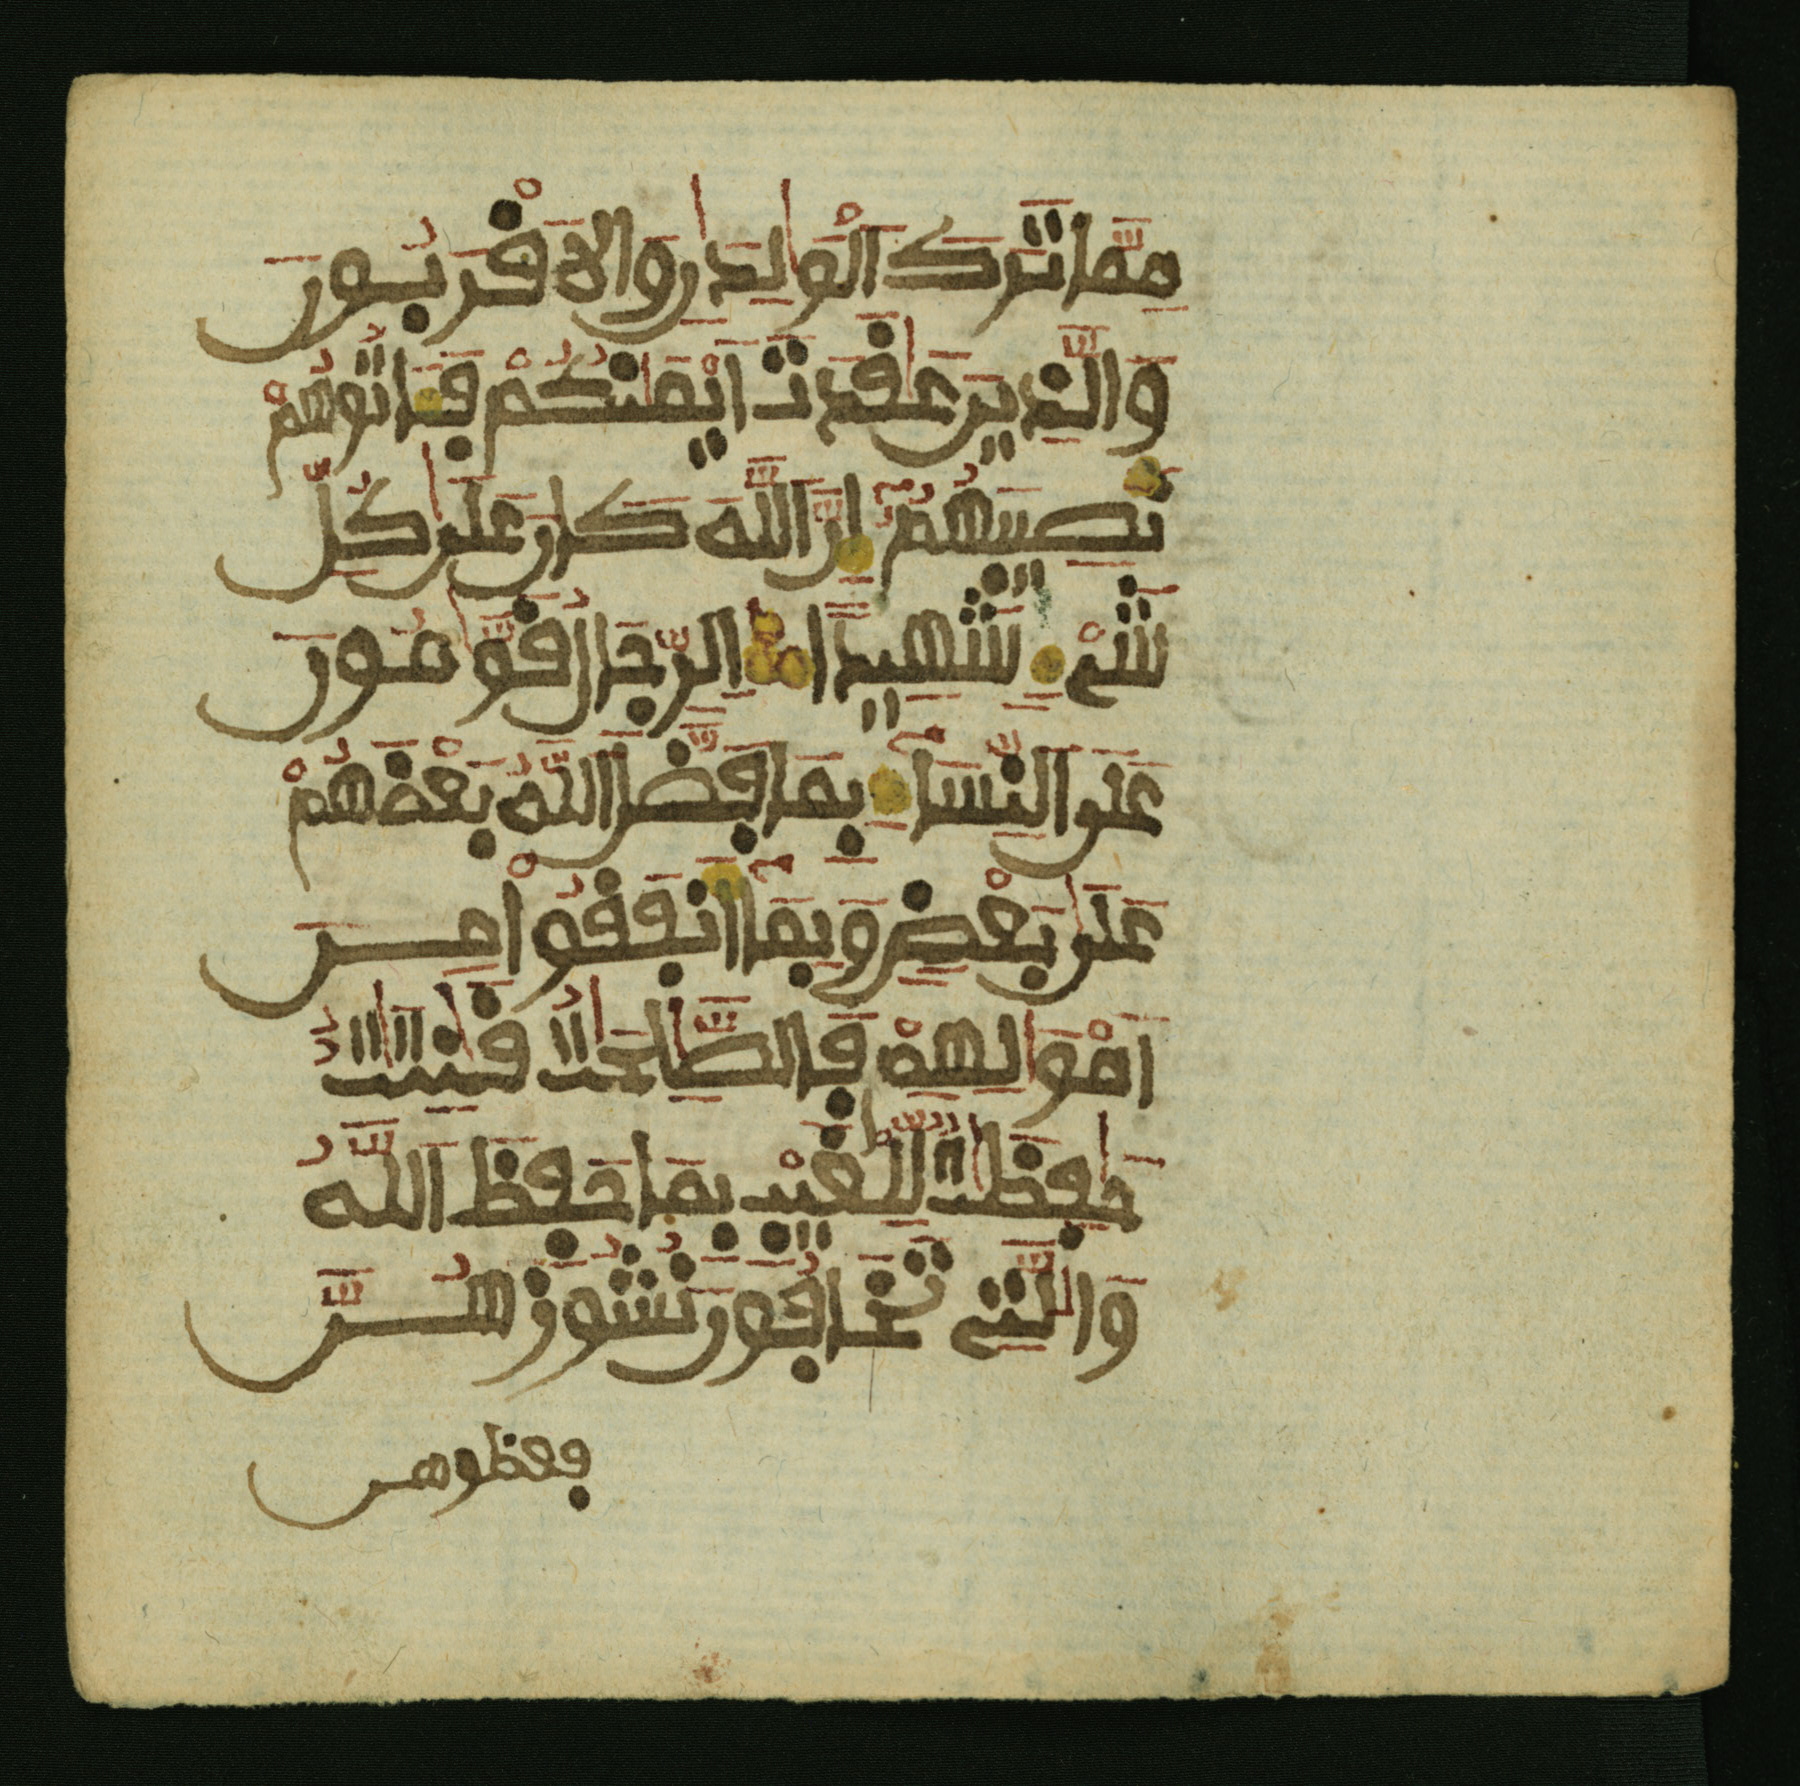 مِمَّا تَرَكَ ٱلْوَٰلِدَٰنِ وَٱلَاقْرَبُونَ
وَٱلَّذِينَ عَٰقَدَتَ اَيْمَٰنُكُمْ فَـَٔاتُوهُمْ
نَصِيبَهُمُۥٓ إِنَّ ٱللَّهَ كَانَ عَلَىٰ كُلِّ
شَےْءٖ شَهِيدًا اِ۬لرِّجَالُ قَوَّٰمُونَ
عَلَى ٱلنِّسَآءِ بِمَا فَضَّلَ ٱللَّهُ بَعْضَهُمْ
عَلَىٰ بَعْضٖ وَبِمَآ أَنفَقُواْ مِنَ
اَمْوَٰلِهِمْ فَٱلصَّٰلِحَٰتُ قَٰنِتَٰتٌ
حَٰفِظَٰتٞ لِّلْغَيْبِ بِمَا حَفِظَ ٱللَّهُ
وَٱلَّٰتِے تَخَافُونَ نُشُوزَهُنَّ
فعظوهن